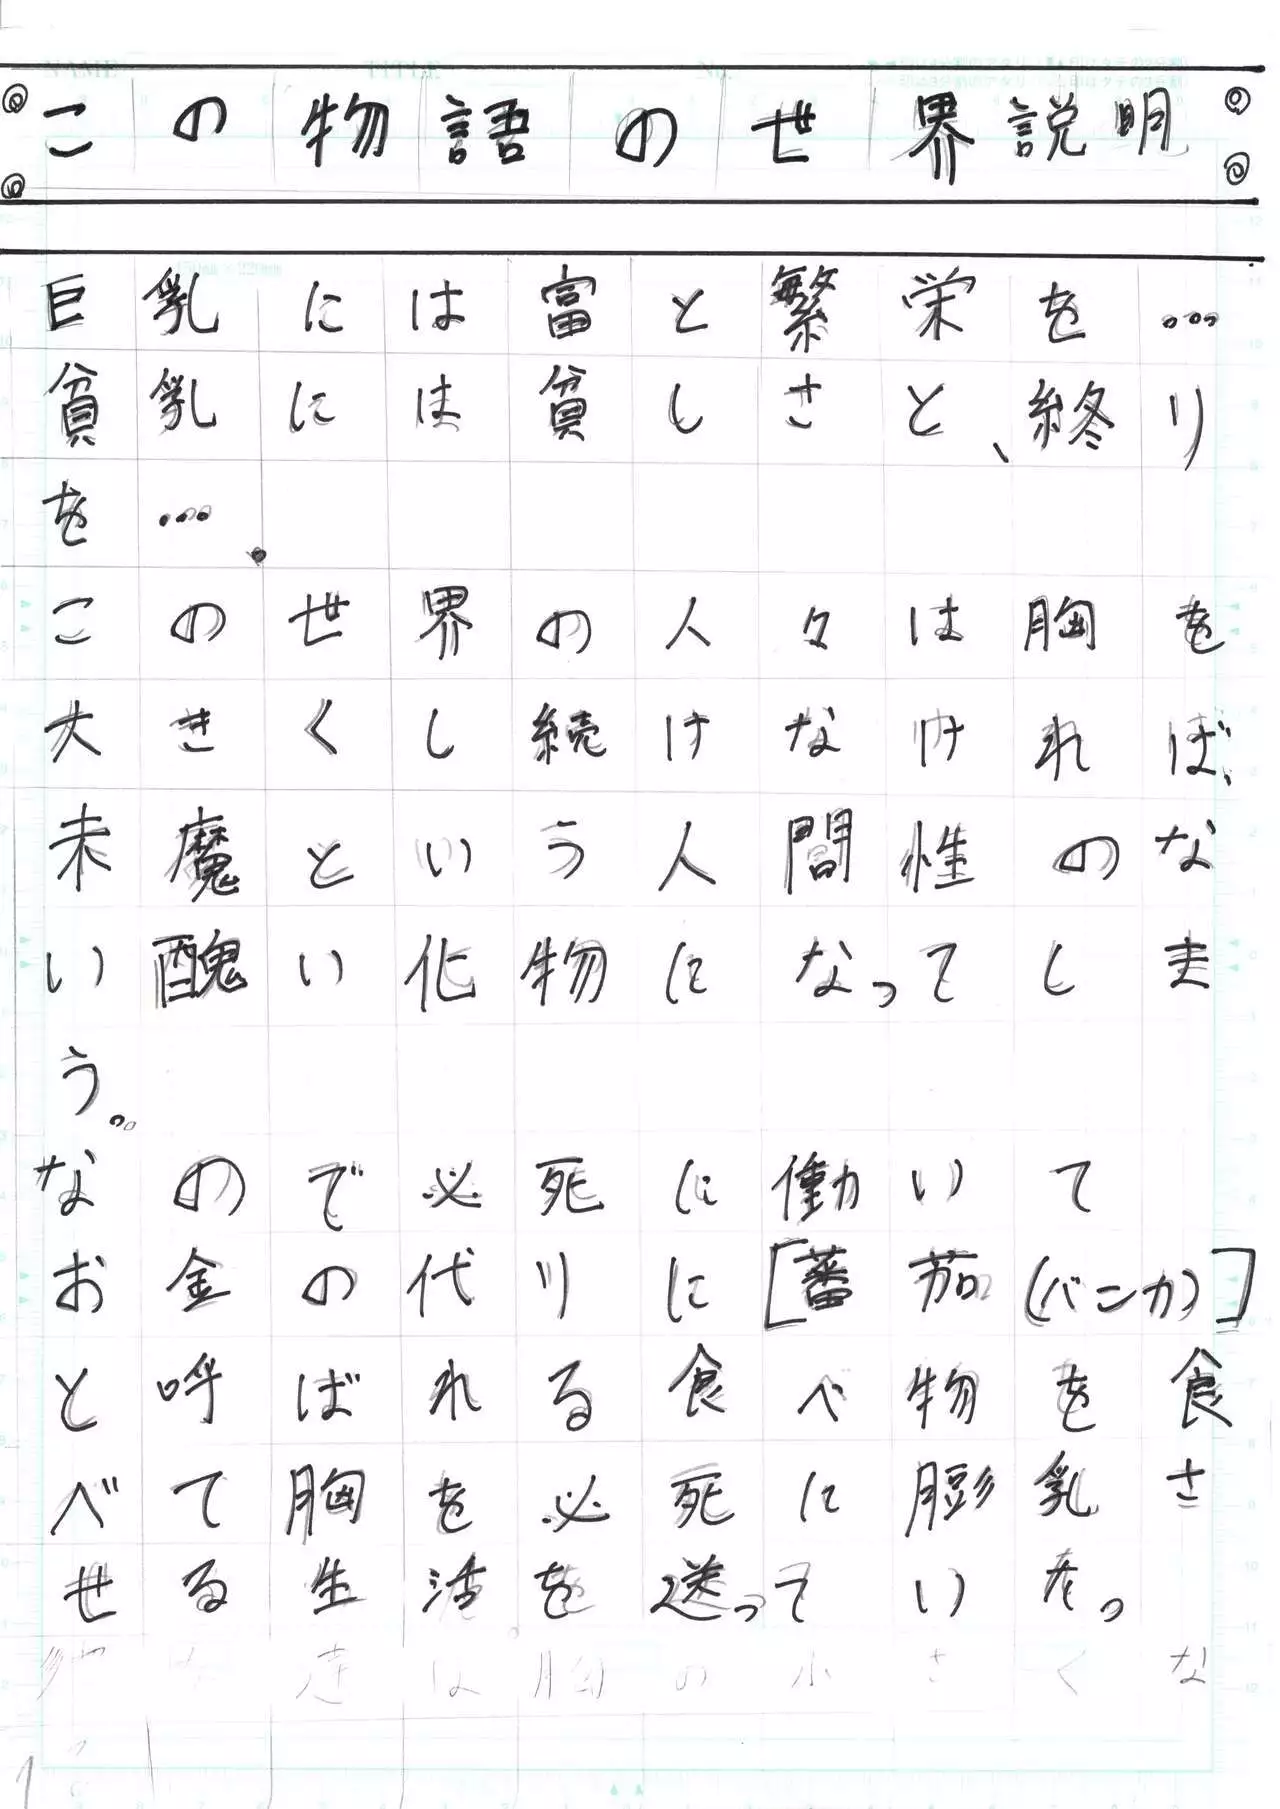 この物語の世界説明
巨乳には富と繁栄を…
貧乳には貧しさと、終り
を…。
この世界の人々は胸を
大きくし続けなければ、
未魔という人間性のな
い醜い化物になってしま
う。
なので必死に働いて
お金の代りに[蕃茄(バンカ)]
と呼ばれる食べ物を食
べて胸を必死に膨乳さ
せる生活を送っていた。
達は胸の小さくな